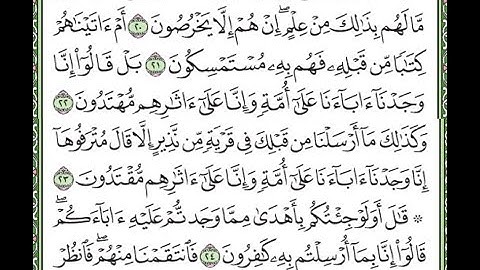 مَّا لَهُم بِذَٰلِكَ مِنْ عِلْمٍ ۖ إِنْ هُمْ إِلَّا يَخْرُصُونَ ٢٠ أَمْ ءَاتَيْنَٰهُمْ
كِتَٰبًا مِّن قَبْلِهِۦ فَهُم بِهِۦ مُسْتَمْسِكُونَ ٢١ بَلْ قَالُوٓا۟ إِنَّا
وَجَدْنَآ ءَابَآءَنَا عَلَىٰٓ أُمَّةٍ وَإِنَّا عَلَىٰٓ ءَاثَٰرِهِم مُّهْتَدُونَ ٢٢
وَكَذَٰلِكَ مَآ أَرْسَلْنَا مِن قَبْلِكَ فِى قَرْيَةٍ مِّن نَّذِيرٍ إِلَّا قَالَ مُتْرَفُوهَآ
إِنَّا وَجَدْنَآ ءَابَآءَنَا عَلَىٰٓ أُمَّةٍ وَإِنَّا عَلَىٰٓ ءَاثَٰرِهِم مُّقْتَدُونَ ٢٣
۞ قَٰلَ أَوَلَوْ جِئْتُكُم بِأَهْدَىٰ مِمَّا وَجَدتُّمْ عَلَيْهِ ءَابَآءَكُمْ ۖ
قَالُوٓا۟ إِنَّا بِمَآ أُرْسِلْتُم بِهِۦ كَٰفِرُونَ ٢٤ فَٱنتَقَمْنَا مِنْهُمْ ۖ فَٱنظُرْ